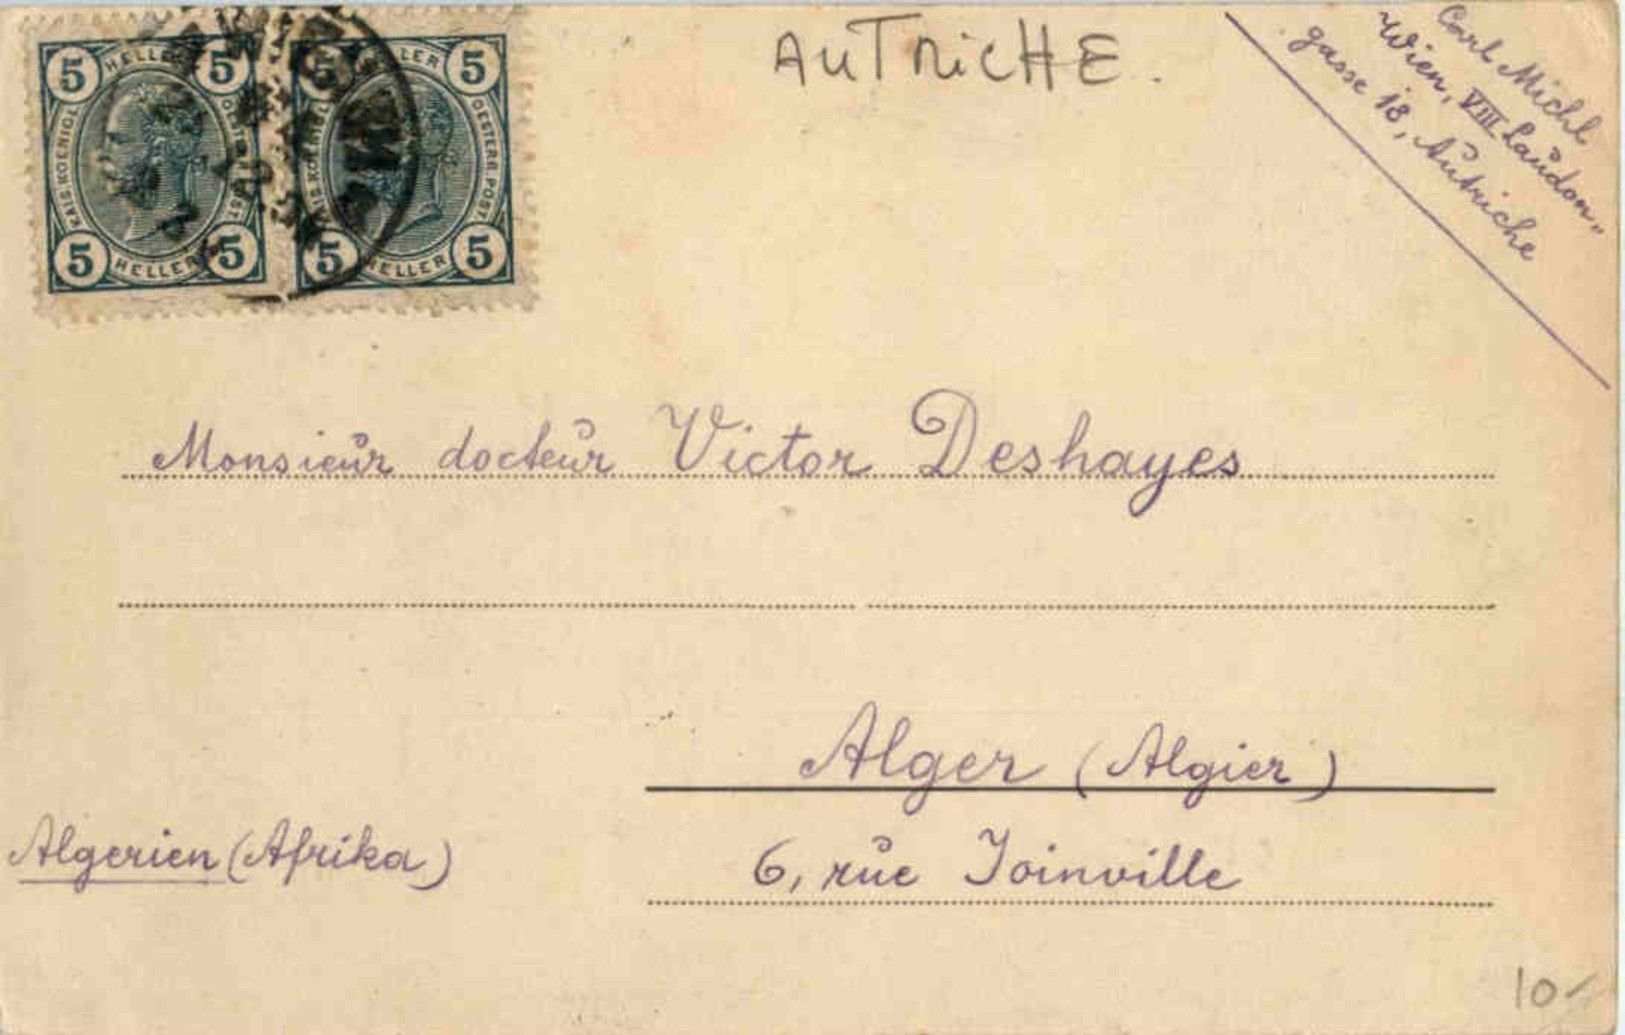 5 HELLER 5
KAIS. KOENIGL. OESTERR. POST
5 HELLER 5
5 HELLER 5
KAIS. KOENIGL. OESTERR. POST
5 HELLER 5
AUTRICHE.
Carl Michl
Wien, VIII Laudon"
gasse 18, Autriche
Monsieur docteur Victor Deshayes
Alger (Algier)
Algerien (Afrika)
6, rue Joinville
10-